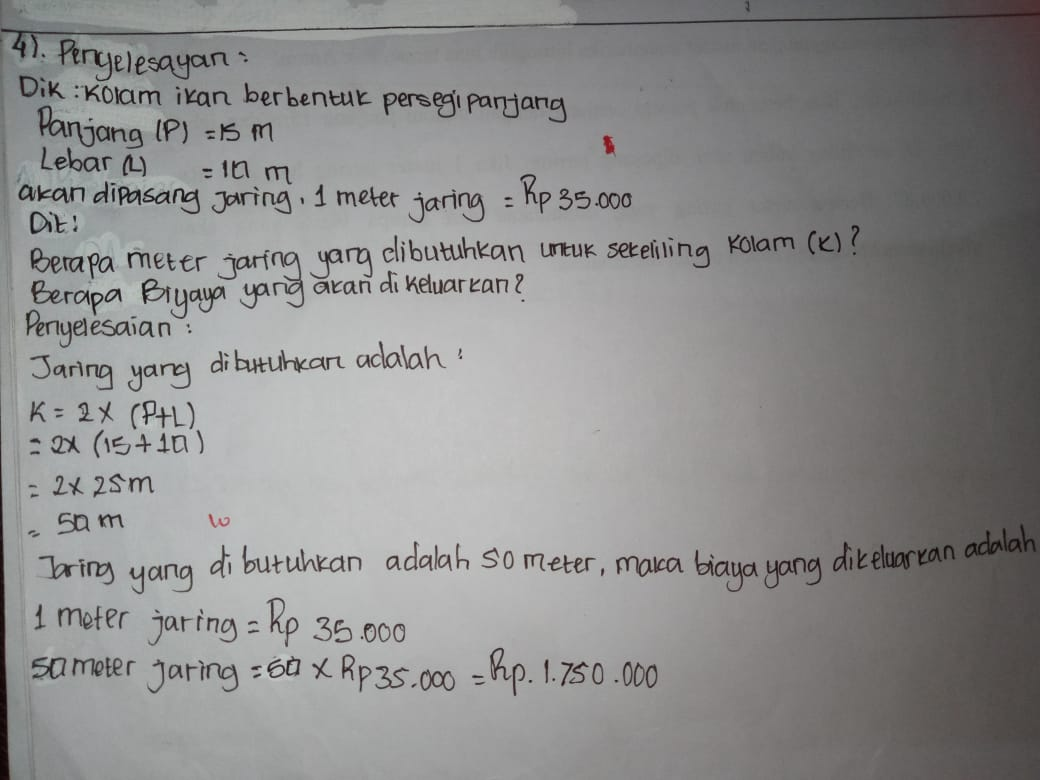 4). Penyelesayan :
Dik : Kolam ikan berbentuk persegi panjang
Panjang (P) = 15 m
Lebar (L) = 10 m
akan dipasang jaring, 1 meter jaring = Rp 35.000
Dit :
Berapa meter jaring yang dibutuhkan untuk sekeliling kolam (K) ?
Berapa Biyaya yang akan di keluarkan ?
Penyelesaian :
Jaring yang dibutuhkan adalah :
K = 2 x (P+L)
= 2x (15 + 10)
= 2 x 25 m
= 50 m
Jaring yang di butuhkan adalah 50 meter, maka biaya yang dikeluarkan adalah
1 meter jaring = Rp 35.000
50 meter jaring = 50 x Rp 35.000 = Rp. 1.750.000